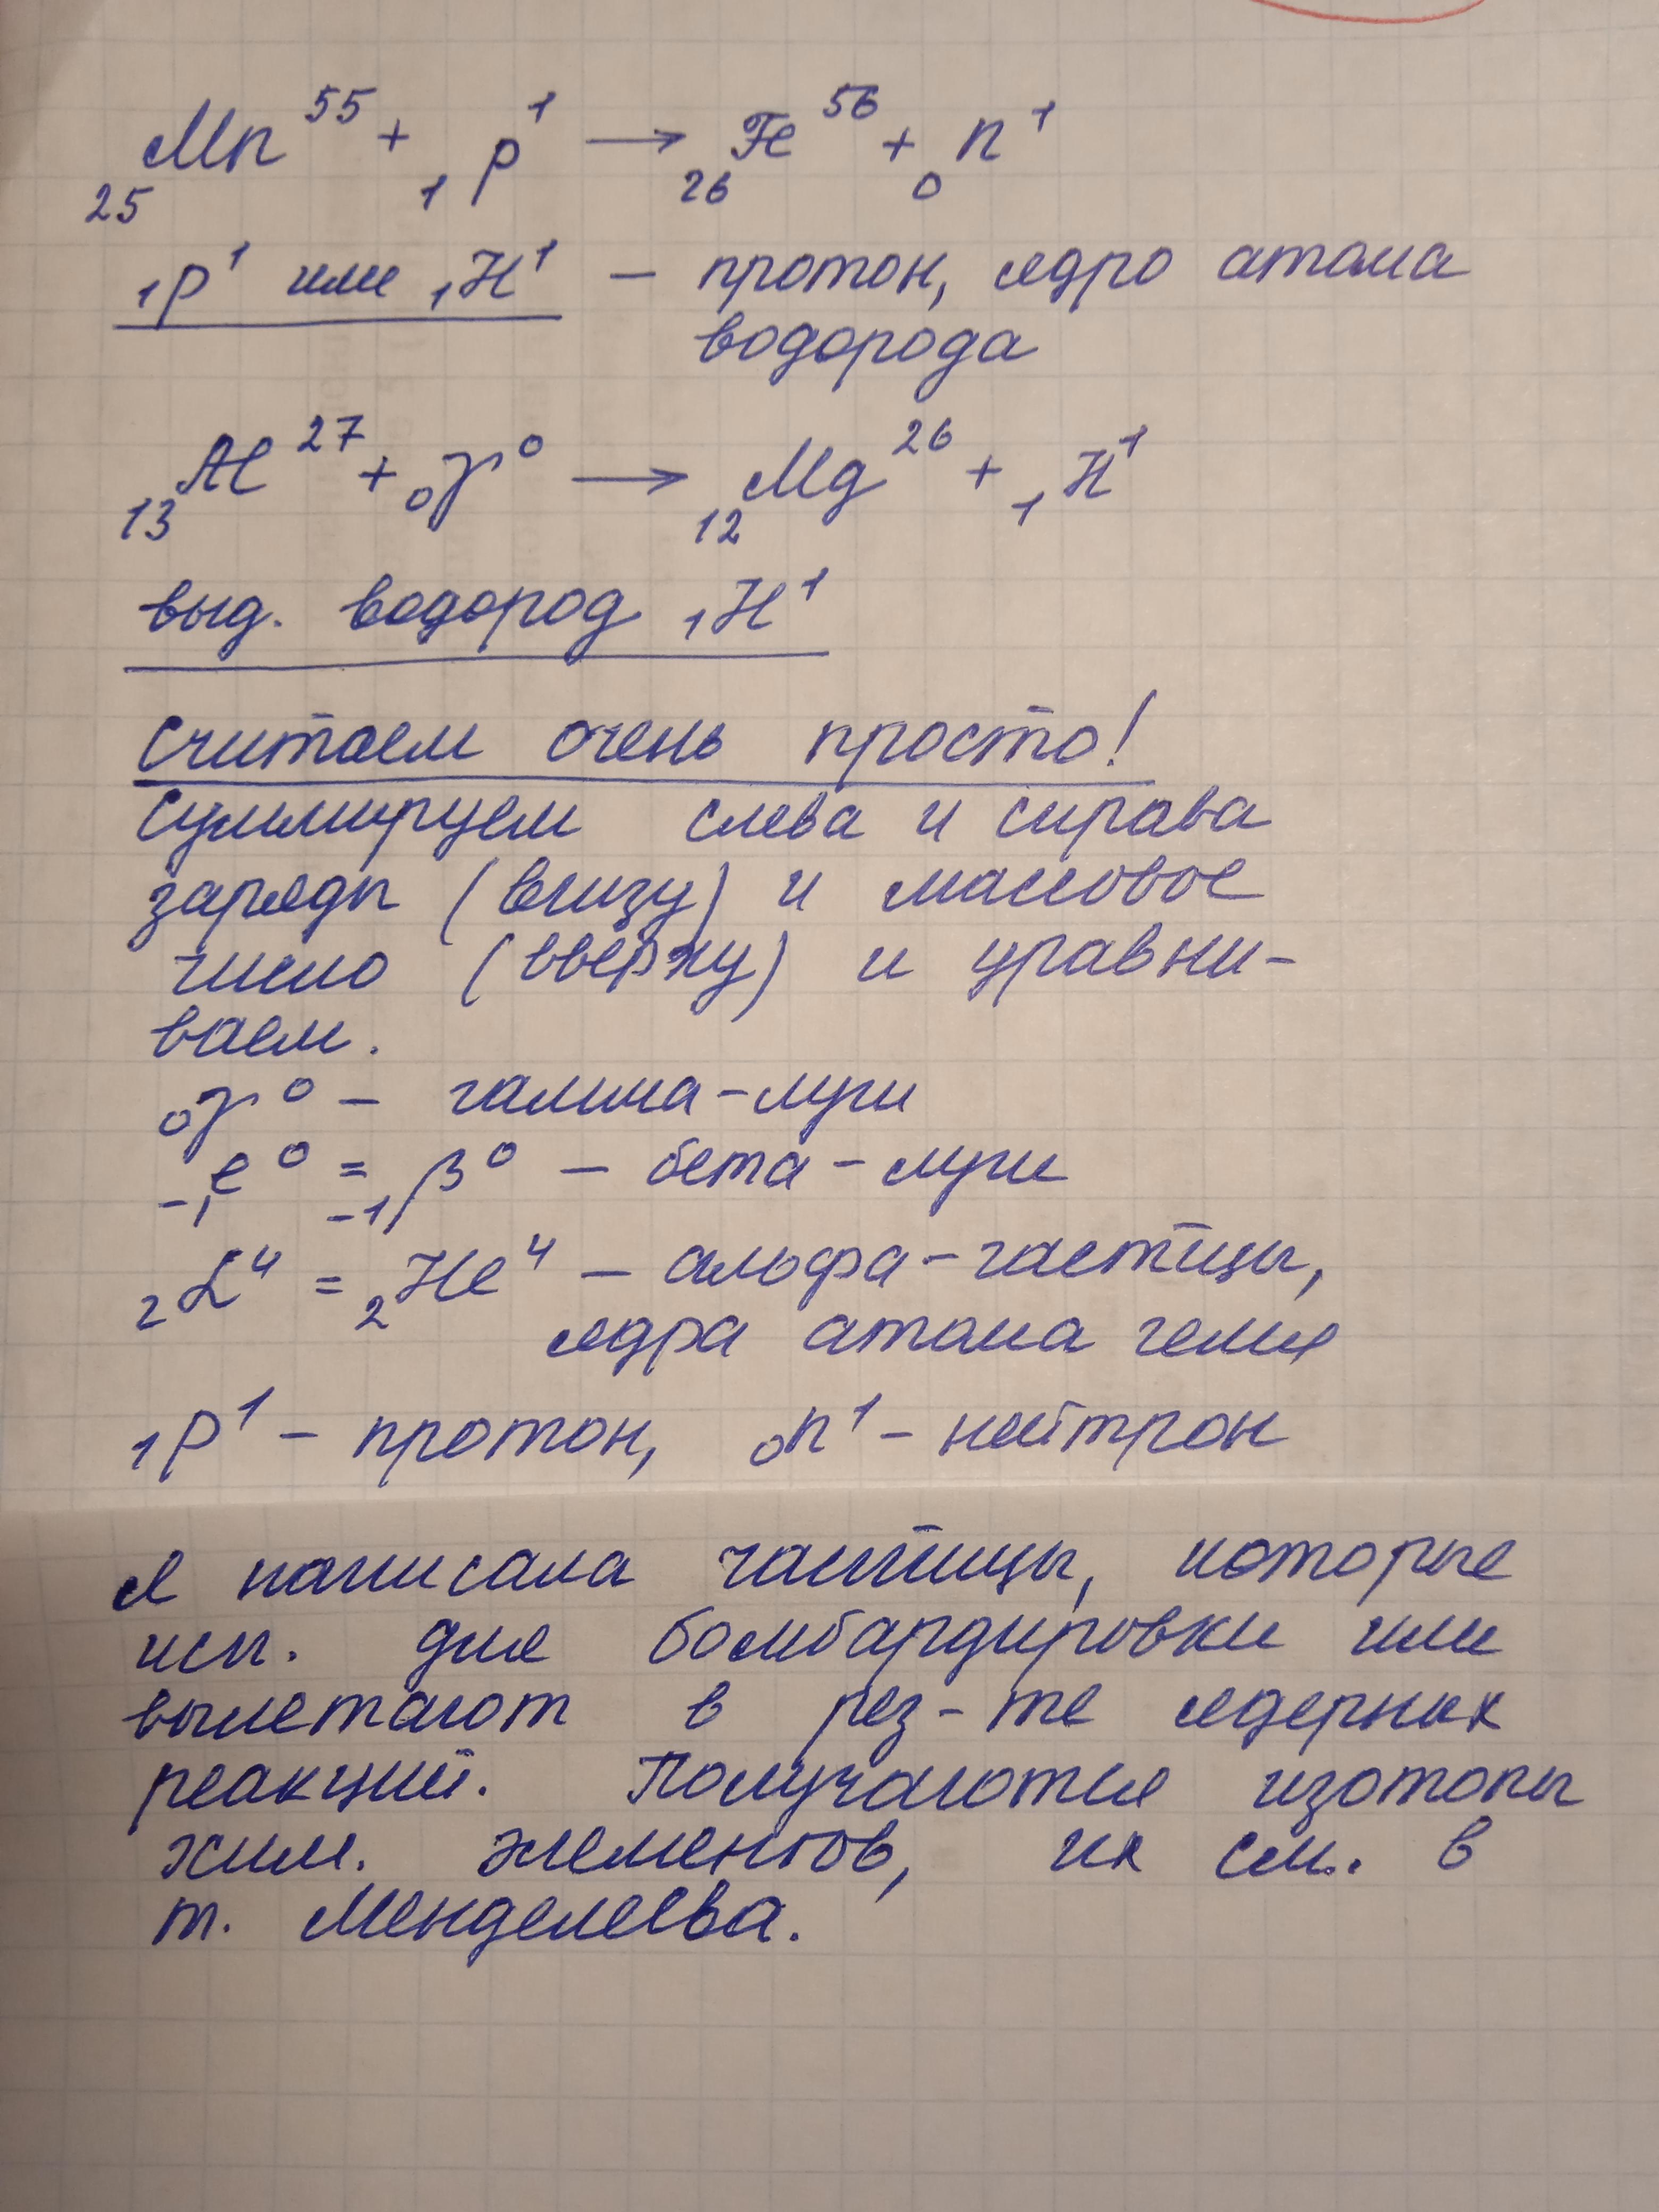 ₂₅Mn⁵⁵ + ₁p¹ → ₂₆Fe⁵⁶ + ₀n¹
₁p¹ или ₁H¹ – протон, ядро атома
водорода
₁₃Al²⁷ + ₀γ⁰ → ₁₂Mg²⁶ + ₁H¹
выд. водород ₁H¹
Считаем очень просто!
Суммируем слева и справа
заряды (внизу) и массовое
число (вверху) и уравни-
ваем.
₀γ⁰ – гамма-лучи
₋₁e⁰ = ₋₁β⁰ – бета-лучи
₂α⁴ = ₂He⁴ – альфа-частицы,
ядра атома гелия
₁p¹ – протон, ₀n¹ – нейтрон
Я написала частицы, которые
исп. для бомбардировки или
вылетают в рез-те ядерных
реакций. Получаются изотопы
хим. элементов, их см. в
т. Менделеева.